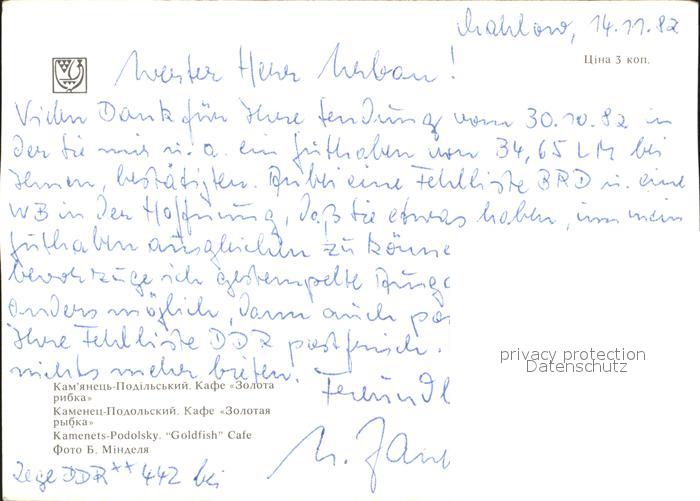 Mahlow, 14.11.82
Ціна 3 коп.
Werter Herr Urban!
Vielen Dank für Ihre Sendung vom 30.10.82 in
der Sie mir u. a. ein Guthaben von 34,65 LM bei
Ihnen, bestätigten. Anbei eine Fehlliste BRD u. eine
WB in der Hoffnung, daß Sie etwas haben, um mein
Guthaben ausgleichen zu könne
bevorzuge ich gestempelte Ausga
anders möglich, dann auch pos
Ihre Fehlliste DDR postfrisch.
nichts mehr bieten.
privacy protection
Datenschutz
Freundl
Кам'янець-Подільський. Кафе «Золота
рибка»
Каменец-Подольский. Кафе «Золотая
рыбка»
Kamenets-Podolsky. "Goldfish" Cafe
Фото Б. Мінделя
Lege DDR ** 442 bei